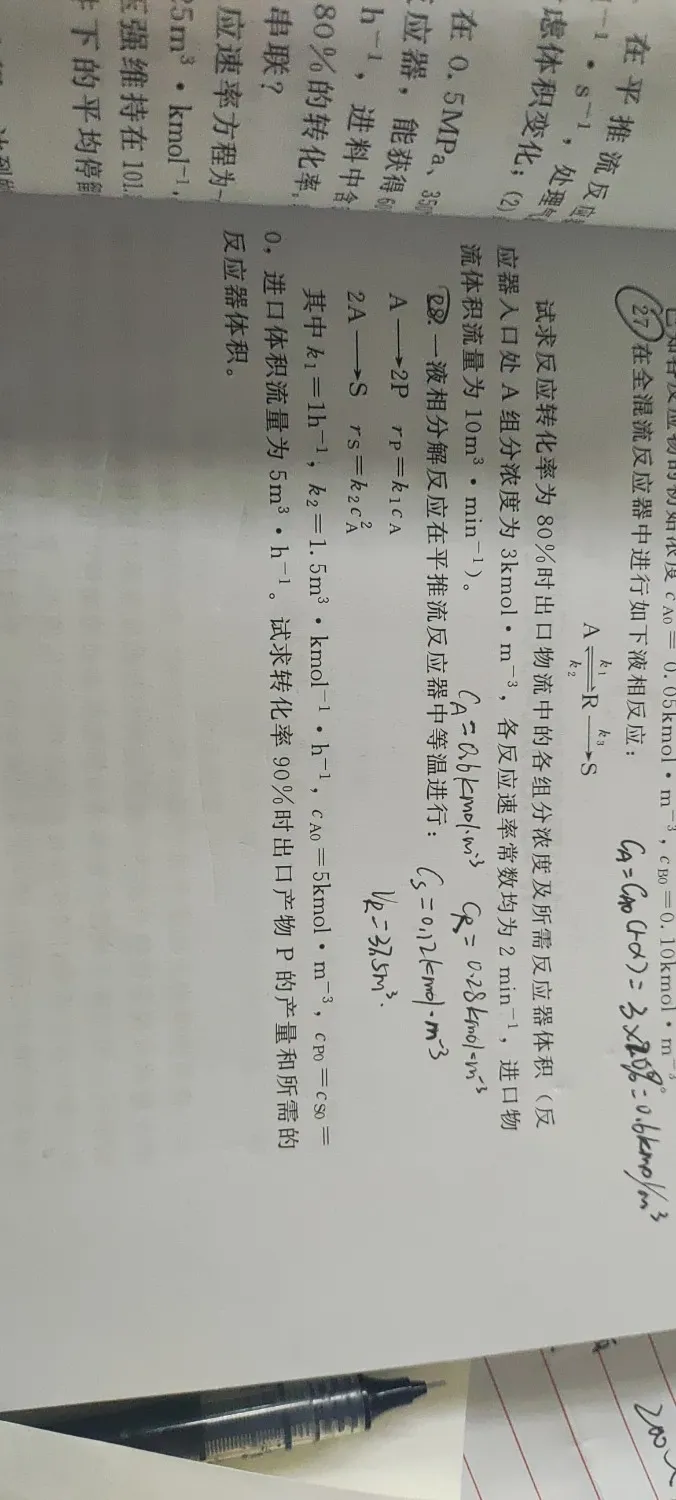 在平推流反
l⁻¹·s⁻¹，处理
虑体积变化；(2)
在 0.5MPa、350
应器，能获得
h⁻¹，进料中含
80%的转化率
串联？
应速率方程为
25m³·kmol⁻¹，
压强维持在 101.
下的平均停留
已知各反应物的初始浓度 c_A0=0.05kmol·m⁻³，c_B0=0.10kmol·m⁻³
27 在全混流反应器中进行如下液相反应：
C_A=C_A0(1-α)=3×20%=0.6kmol/m³
A ⇌ R ⟶ S
k₁ k₃
k₂
试求反应转化率为 80%时出口物流中的各组分浓度及所需反应器体积（反
应器入口处 A 组分浓度为 3kmol·m⁻³，各反应速率常数均为 2 min⁻¹，进口物
流体积流量为 10m³·min⁻¹）。
C_A=0.6kmol·m⁻³ C_R=0.28kmol·m⁻³
28.一液相分解反应在平推流反应器中等温进行：
C_S=0.12kmol·m⁻³
A⟶2P r_P=k₁c_A
V_R=37.5m³.
2A⟶S r_S=k₂c_A²
其中 k₁=1h⁻¹，k₂=1.5m³·kmol⁻¹·h⁻¹，c_A0=5kmol·m⁻³，c_P0=c_S0=
0，进口体积流量为 5m³·h⁻¹。试求转化率 90%时出口产物 P 的产量和所需的
反应器体积。